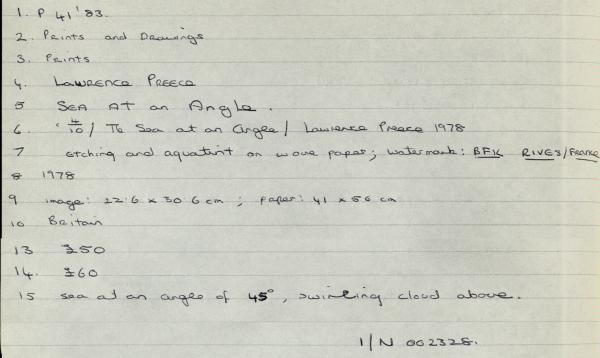 1. P 41'83.
2. Prints and Drawings
3. Prints
4. LAWRENCE PREECE
5 SEA AT an Angle.
6. '4/10 / The Sea at an angle / Lawrence Preece 1978
7 etching and aquatint on wove paper; watermark: BFK RIVES/France
8 1978
9 image: 22.6 x 30.6 cm ; paper: 41 x 56 cm
10 Britain
13 £50
14. £60
15 sea at an angle of 45°, swirling cloud above.
I/N 002328.